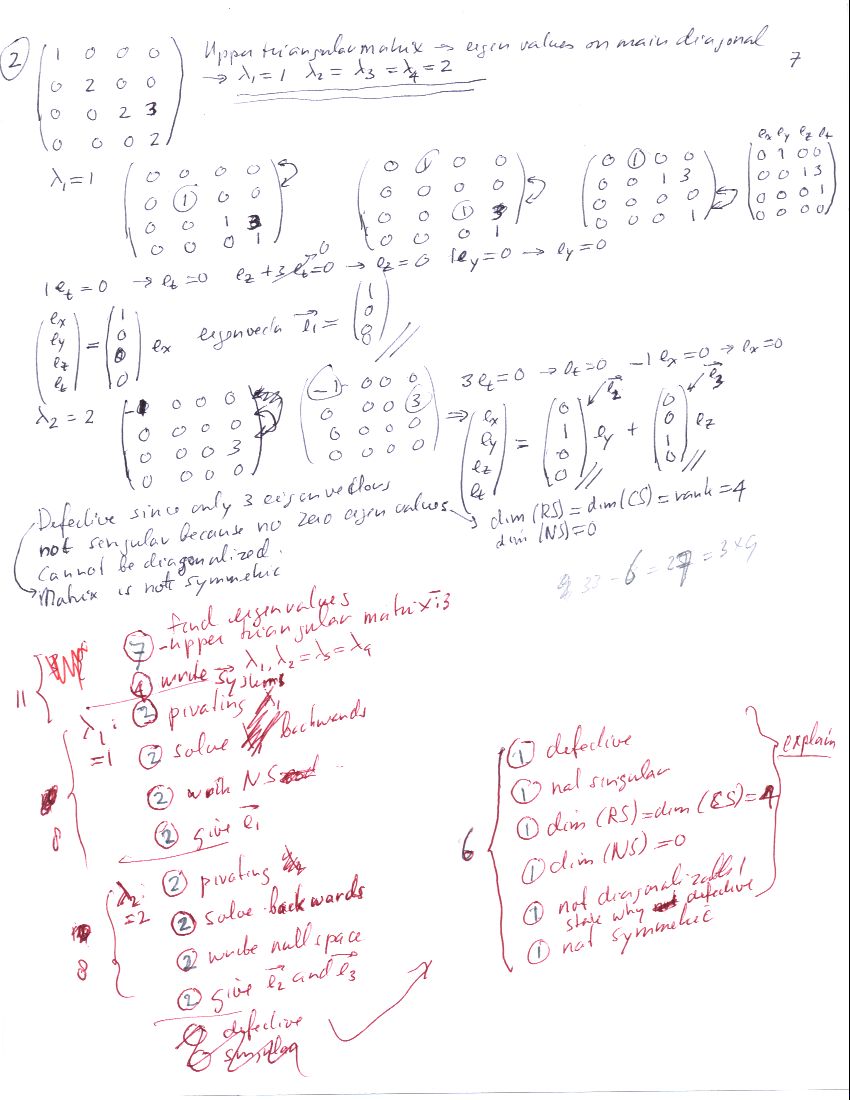 ② 1 0 0 0 Upper triangular matrix → eigen values on main diagonal 7
0 2 0 0 → λ₁=1 λ₂ = λ₃ = λ₄ = 2
0 0 2 3
0 0 0 2
λ₁=1
0 0 0 0
0 1 0 0
0 0 1 3
0 0 0 1
0 1 0 0
0 0 0 0
0 0 1 3
0 0 0 1
0 1 0 0
0 0 1 3
0 0 0 0
0 0 0 1
ex ey ez et
0 1 0 0
0 0 1 3
0 0 0 1
0 0 0 0
1 et = 0 → et = 0 ez + 3 et = 0 → ez = 0 1 ey = 0 → ey = 0
ex ey ez et = 1 0 0 0 ex e₁ = 1 0 0
λ₂ = 2
-1 0 0 0
0 0 0 0
0 0 0 3
0 0 0 0
-1 0 0 0
0 0 0 3
0 0 0 0
0 0 0 0
3 et = 0 → et = 0 -1 ex = 0 → ex = 0
⇒ ex ey ez et = 0 1 0 0 ey + 0 0 1 0 ez
e₂ e₃
Defective since only 3 eigenvectors
not singular because no zero eigen values
cannot be diagonalized.
Matrix is not symmetric
dim (RS) = dim (CS) = rank = 4
dim (NS) = 0
33 - 6 = 27 = 3×9
find eigenvalues
⑦ - upper triangular matrix: 3
11
④ write → λ₁, λ₂ = λ₃ = λ₄
systems
λ₁: =1
② pivating λ₁
② solve backwards
② NS
② give e₁
8
λ₂: =2
② pivating
② solve backwards
② write null space
② give e₂ and e₃
8
defective
6
① defective
① not singular
① dim (RS) = dim (CS) = 4
① dim (NS) = 0
① not diagonalizable!
state why defective
① not symmetric
explain